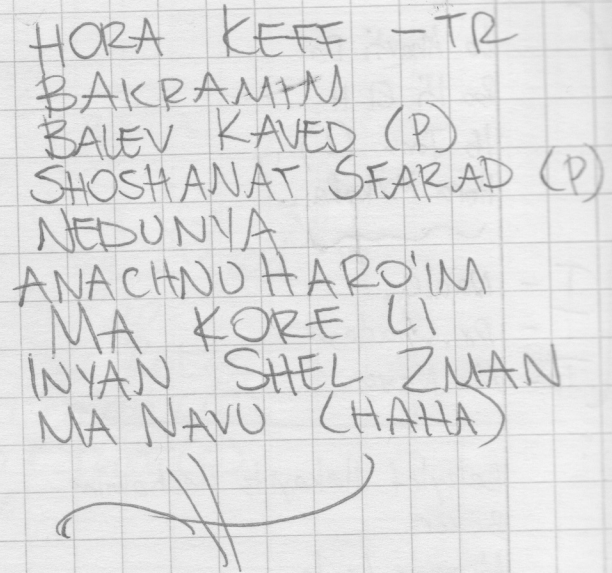 HORA KEFF - TR
BAKRAMIM
BALEV KAVED (P)
SHOSHANAT SFARAD (P)
NEDUNYA
ANACHNU HARO'IM
MA KORE LI
INYAN SHEL ZMAN
MA NAVU (HAHA)